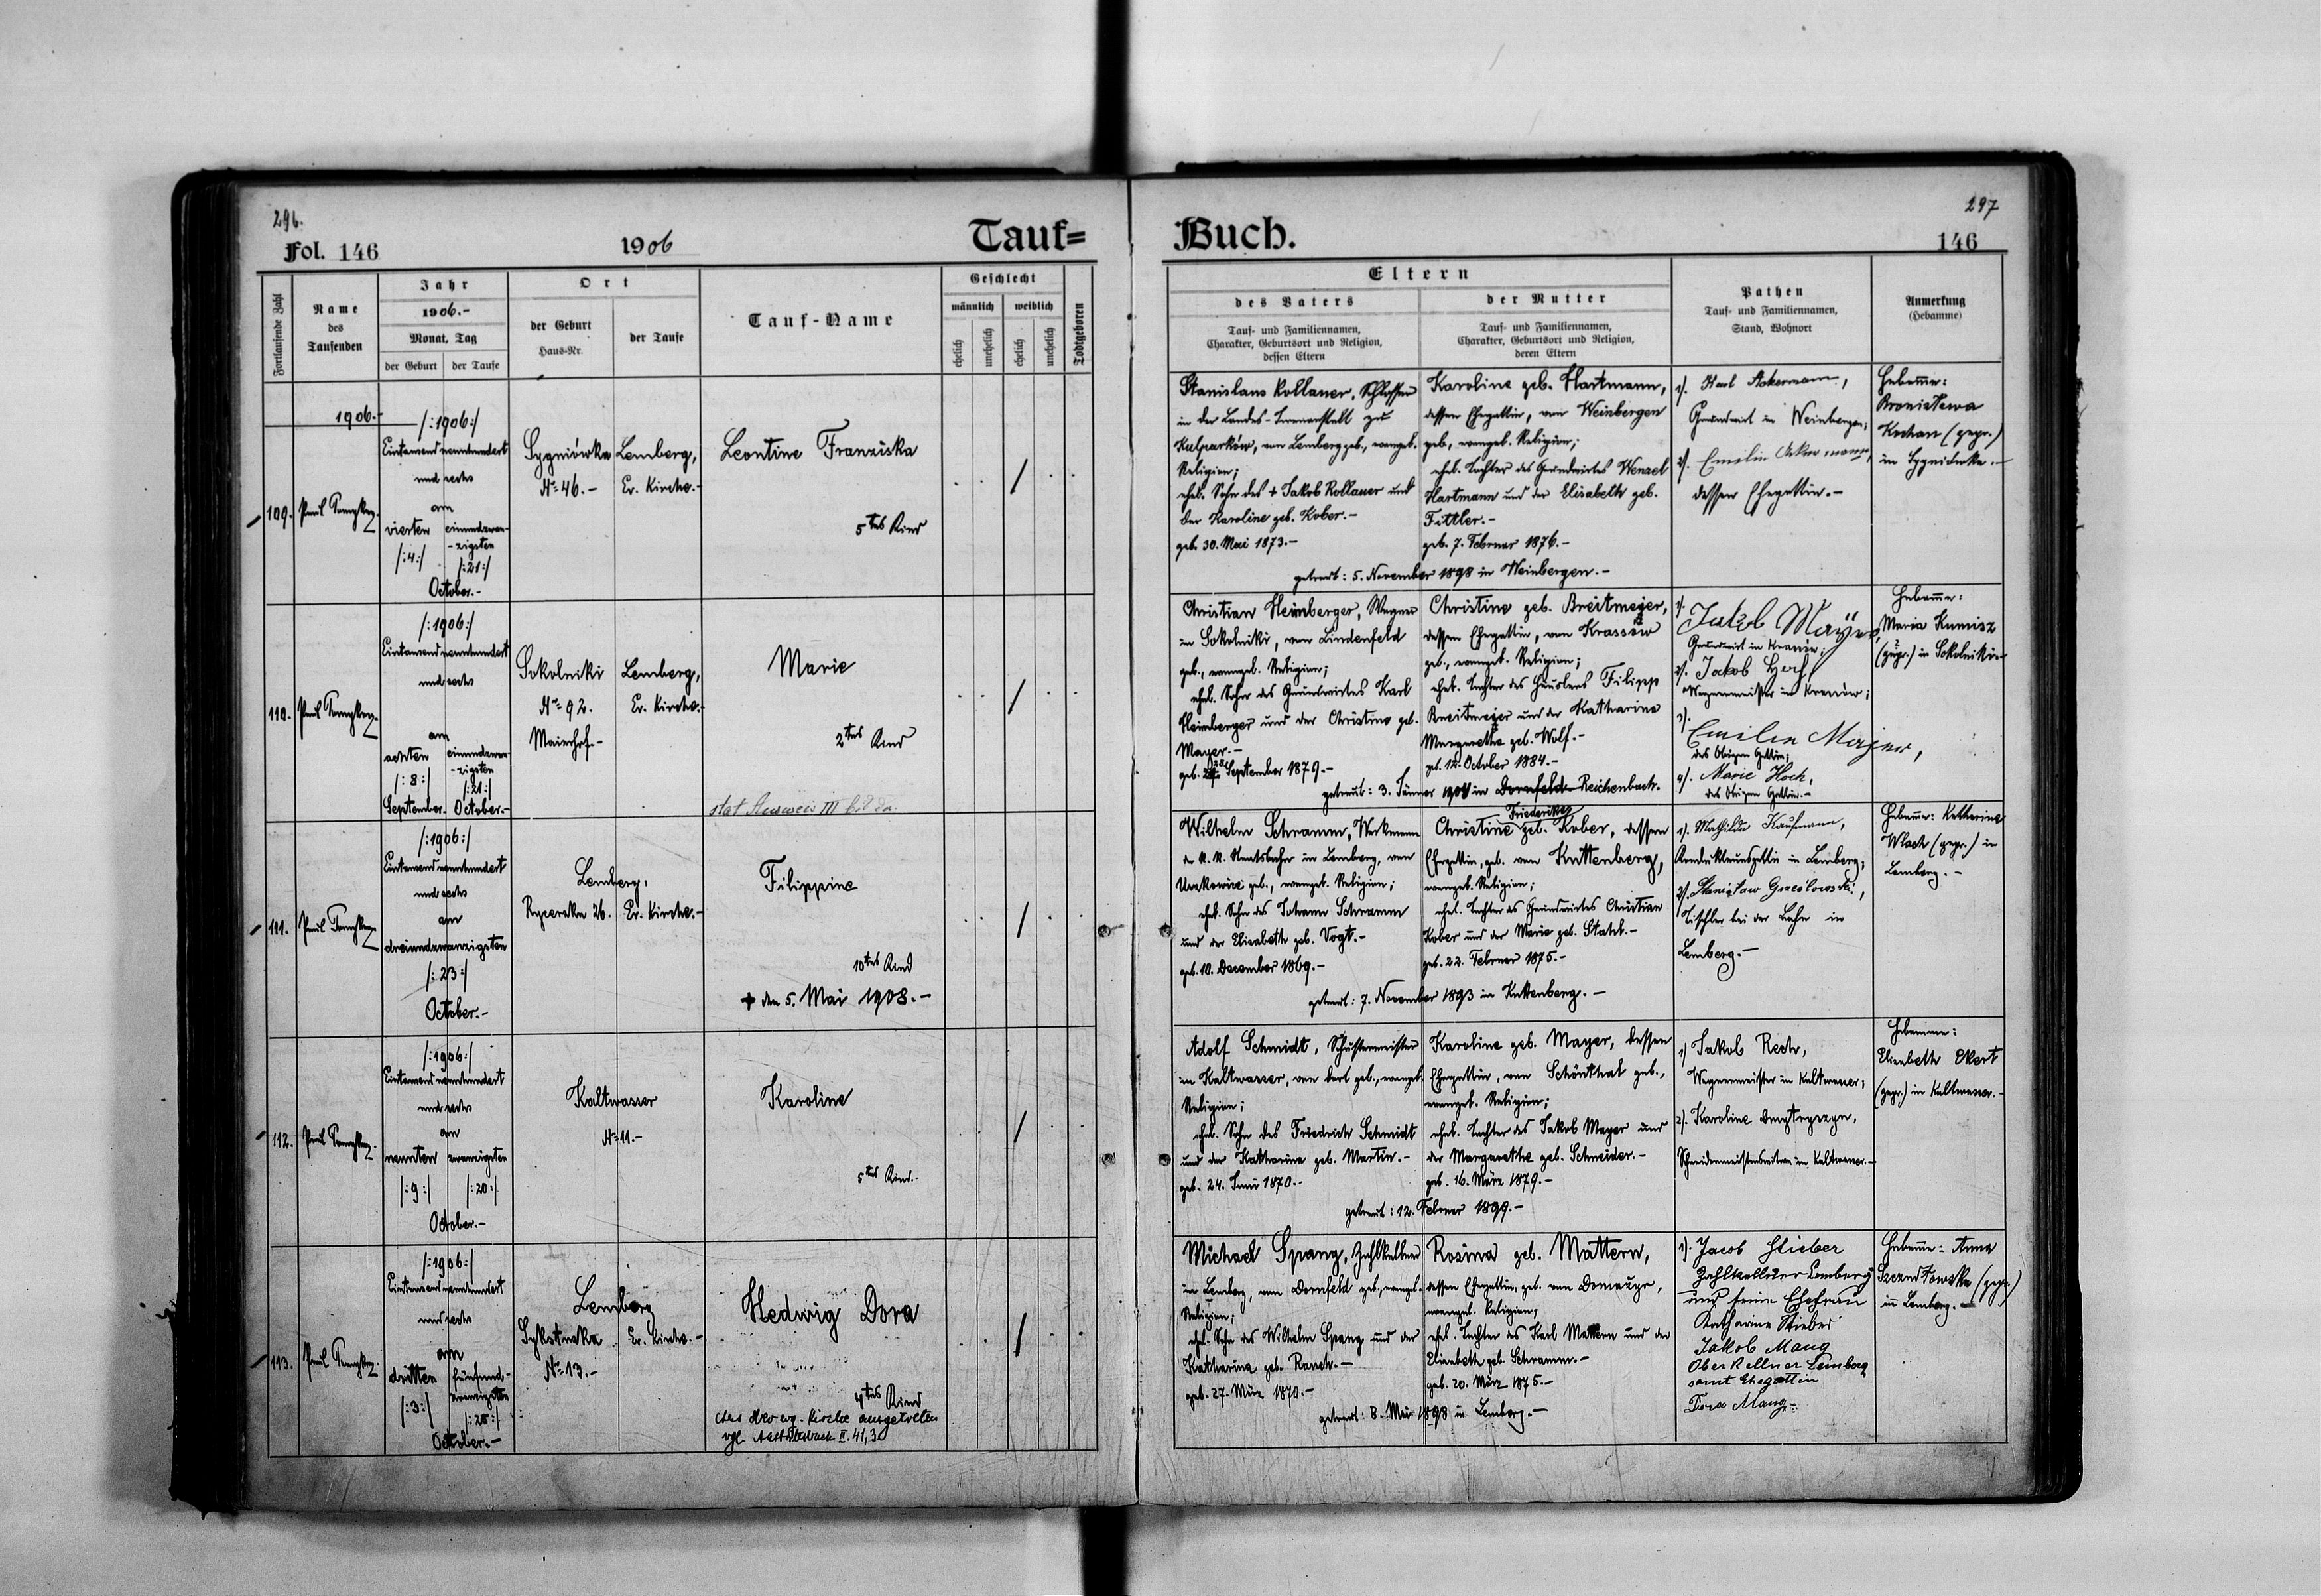 296.
Fol. 146
1906
Tauf=
Fortlaufende Zahl
Name
des
Taufenden
Jahr
1906.-
Monat, Tag
der Geburt
der Taufe
Ort
der Geburt
Haus-Nr.
der Taufe
Tauf-Name
Geschlecht
männlich
weiblich
ehelich
unehelich
ehelich
unehelich
Todtgeboren
1906.-
109.
Paul
/:1906:/
Eintausend neunhundert
und sechs
am
vierten
/:4:/
einundzwan-
-zigsten
/:21:/
October.-
Sygniówka
N= 46.-
Lemberg,
Ev. Kirche.-
Leontine Franziska
5tes Kind
110.
Paul
/:1906:/
Eintausend neunhundert
und sechs
am
achten
/:8:/
September.
einundzwan-
-zigsten
/:21:/
October.-
Sokolniki
N= 92.
Maierhof.-
Lemberg,
Ev. Kirche.-
Marie
2tes Kind
111.
Paul
/:1906:/
Eintausend neunhundert
und sechs
am
dreiundzwanzigsten
/:23:/
October.-
Lemberg,
Rycerska 26.
Ev. Kirche.-
Filippine
10tes Kind
+ den 5. Mai 1908.-
112.
Paul
/:1906:/
Eintausend neunhundert
und sechs
am
neunten
/:9:/
zwanzigsten
/:20:/
October.-
Kaltwasser
N= 11.-
Karoline
5tes Kind.-
113.
Paul
/:1906:/
Eintausend neunhundert
und sechs
am
dritten
/:3:/
fünfund-
zwanzigsten
/:25:/
October.-
Lemberg
Sykstuska
N= 13.-
Ev. Kirche.-
Hedwig Dora
4tes Kind
aus der evg. Kirche ausgetreten
vgl. II. 41,3
297
Buch.
146
Eltern
des Vaters
Tauf- und Familiennamen,
Charakter, Geburtsort und Religion,
dessen Eltern
der Mutter
Tauf- und Familiennamen,
Charakter, Geburtsort und Religion,
deren Eltern
Pathen
Tauf- und Familiennamen,
Stand, Wohnort
Anmerkung
(Hebamme)
Stanislaus Kollauer, Schlosser
in der Landes-Irrenanstalt zu
Kulparków, von Lemberg geb., evangel.
Religion;
ehel. Sohn des + Jakob Kollauer und
der Karoline geb. Kober.-
geb. 30. Mai 1873.-
Karoline geb. Hartmann,
dessen Ehegattin, von Weinbergen
geb., evangel. Religion;
ehel. Tochter des Grundwirtes Wenzel
Hartmann und der Elisabeth geb.
Fittler.-
geb. 7. Februar 1876.-
getraut: 5. November 1898 in Weinbergen.-
1). Karl Ackermann,
Grundwirt in Weinbergen;
2). Emilin Ackermann,
dessen Ehegattin.-
Hebamme:
Bronisława
Kochan (gepr.)
in Sygniówka.-
Christian Heimberger, Wagner
in Sokolniki, von Lindenfeld
geb., evangel. Religion;
ehel. Sohn des Grundwirtes Karl
Heimberger und der Christine geb.
Mayer.-
geb. 28. September 1879.-
Christine geb. Breitmeyer,
dessen Ehegattin, von Krassów
geb., evangel. Religion;
ehel. Tochter des Häuslers Filipp
Breitmeier und der Katharine
Margarethe geb. Wolf.-
geb. 12. October 1884.-
getraut: 3. Jänner 1904 in Dornfeld Reichenbach.
1). Jakob Mayer,
Grundwirt in Krasów;
2). Jakob
Wagnermeister in Krasów;
3). Emilin Majer,
des Obigen Gattin;
4). Marie Hoch,
des Obigen Gattin.-
Hebamme:
Maria Kumisz
(gepr.) in Sokolniki.-
Wilhelm Schramm, Werkmann
der k. k. Staatsbahn in Lemberg, von
geb., evangel. Religion;
ehel. Sohn des Johann Schramm
und der Elisabeth geb. Vogt.-
geb. 10. December 1869.-
Friederike
Christine geb. Kober, dessen
Ehegattin, geb. von Kuttenberg,
evangel. Religion;
ehel. Tochter des Grundwirtes Christian
Kober und der Marie geb. Stahl.-
geb. 22. Februar 1875.-
getraut: 7. November 1893 in Kuttenberg.-
1). Mathilde Kaufmann,
Kondukteursgattin in Lemberg;
2). Stanisław
Tischler bei der Bahn in
Lemberg.-
Hebamme: Katharine
Wlach (gepr.) in
Lemberg.-
Adolf Schmidt, Schustermeister
in Kaltwasser, von dort geb., evangel.
Religion;
ehel. Sohn des Friedrich Schmidt
und der Katharina geb. Martin.-
geb. 24. Juni 1870.-
Karoline geb. Mayer, dessen
Ehegattin, von Schönthal geb.,
evangel. Religion;
ehel. Tochter des Jakob Mayer und
der Margarethe geb. Schneider.-
geb. 16. März 1879.-
getraut: 12. Februar 1899.-
1) Jakob Rech,
Wagnermeister in Kaltwasser;
2). Karoline
in Kaltwasser.-
Hebamme:
Elisabeth Ekert
(gepr.) in Kaltwasser.-
Michael Spang, Zahlkellner
in Lemberg, von Dornfeld geb., evangel.
Religion;
ehel. Sohn des Wilhelm Spang und der
Katharina geb. Rauch.-
geb. 27. März 1870.-
Rosina geb. Mattern,
dessen Ehegattin, geb. von Domażyr,
evangel. Religion;
ehel. Tochter des Karl Mattern und der
Elisabeth geb. Schramm.-
geb. 20. März 1875.-
getraut: 8. Mai 1898 in Lemberg.-
1). Jacob Stieber
Zahlkellner Lemberg
und seine Ehefrau
Katharine Stieber
Jakob Maug
Oberkellner Lemberg
samt Ehegattin
Dora Maug.-
Hebamme: Anna
(gepr.)
in Lemberg.-